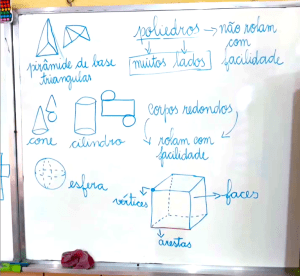 poliedros → não rolam
com
facilidade
muitos lados
pirâmide de base
triangulas
corpos redondos
cone
cilindro
rolam com
facilidade
esfera
vértices
faces
arestas